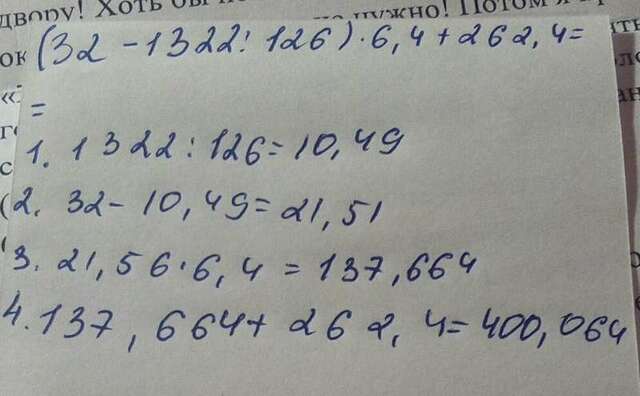 двору! Хоть
нужно! Потом
ок
(32 - 1322 : 126) · 6,4 + 262,4 =
=
1. 1322 : 126 = 10,49
2. 32 - 10,49 = 21,51
3. 21,56 · 6,4 = 137,664
4. 137,664 + 262,4 = 400,064